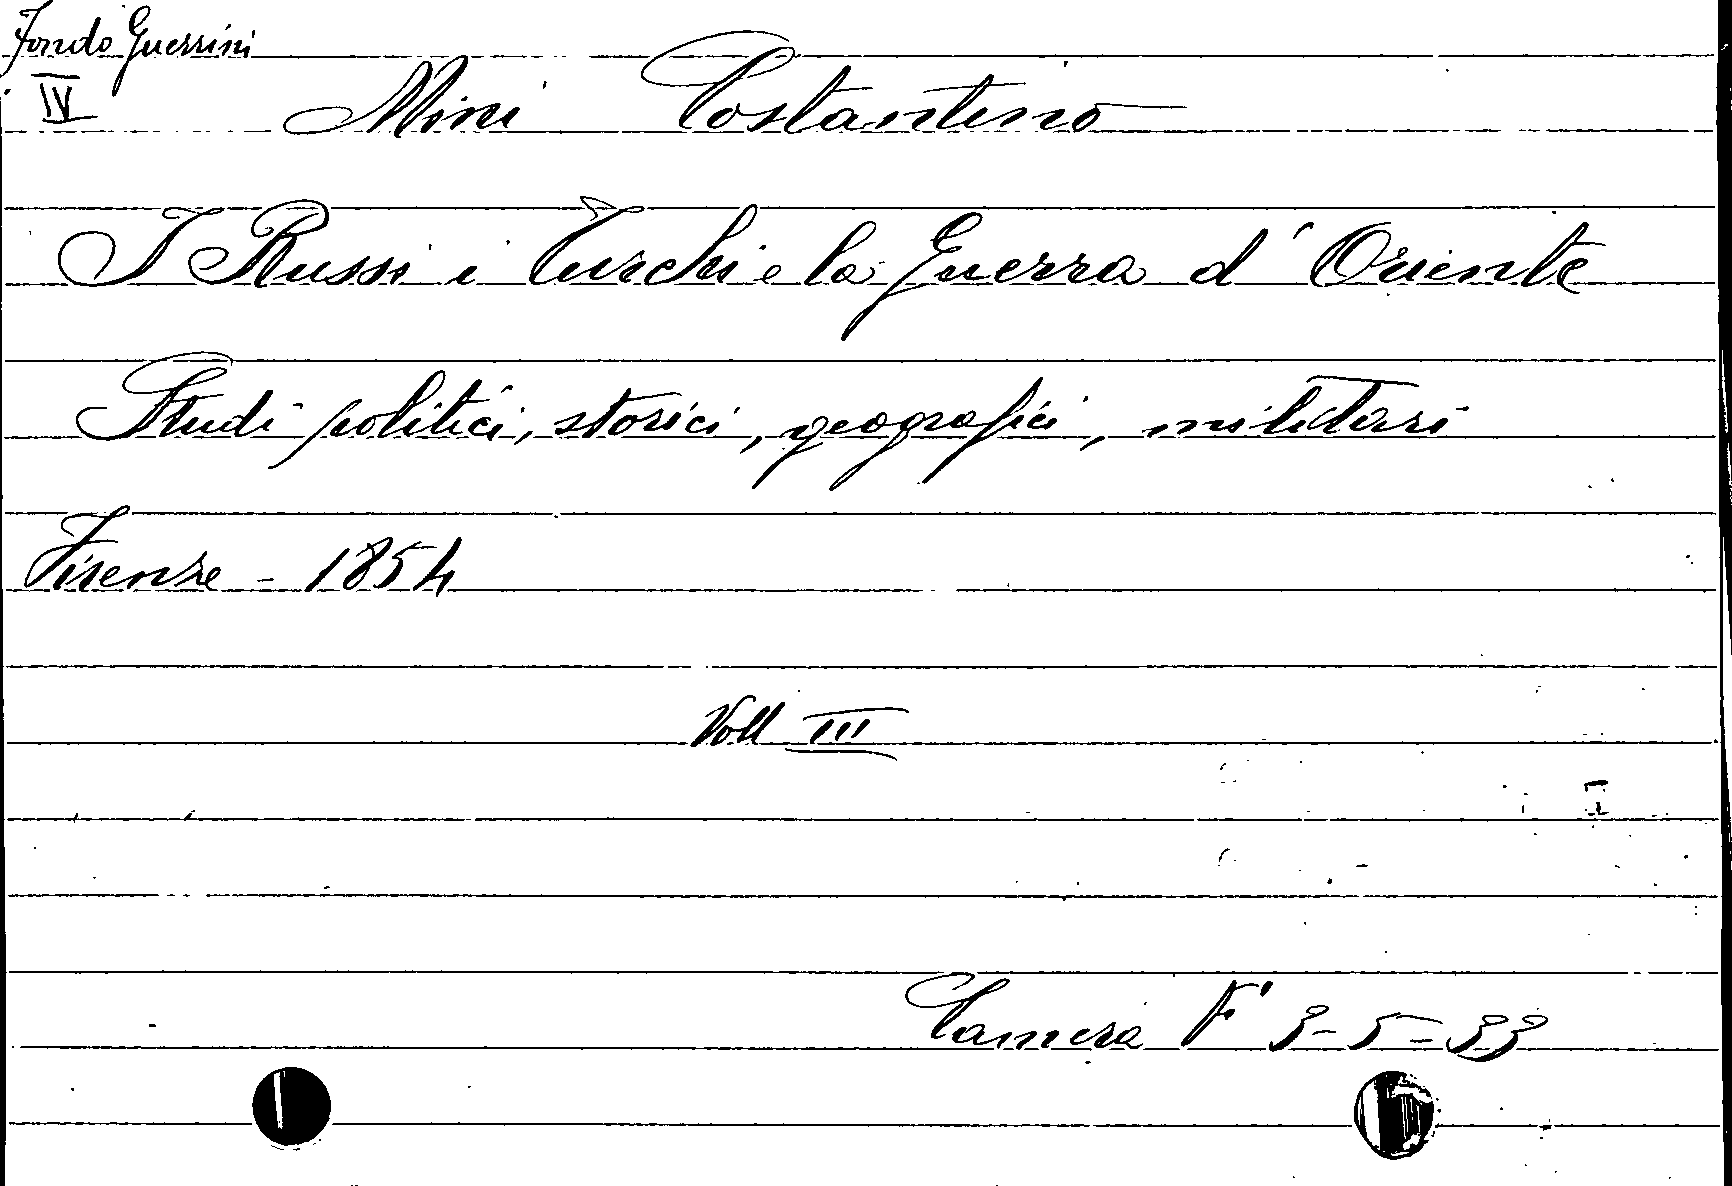 Fondo Guerrini
IV
Mini Costantino
I Russi i Turchi e la Guerra d' Oriente
Studi politici, storici, geografici, militari
Firenze - 1854
Voll III
Camera F' 3-5-33